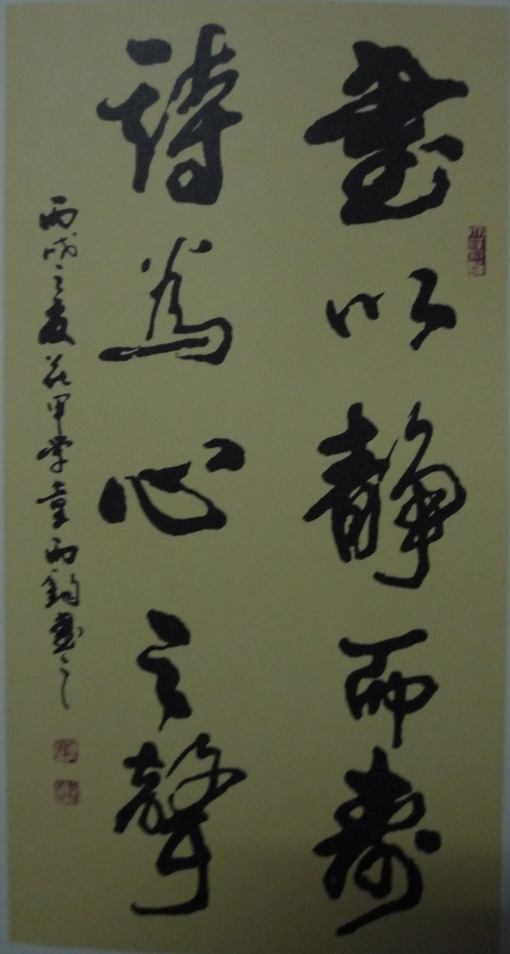 書以靜而壽
詩為心之聲
丙戌之夏花甲學童雨鈞書之